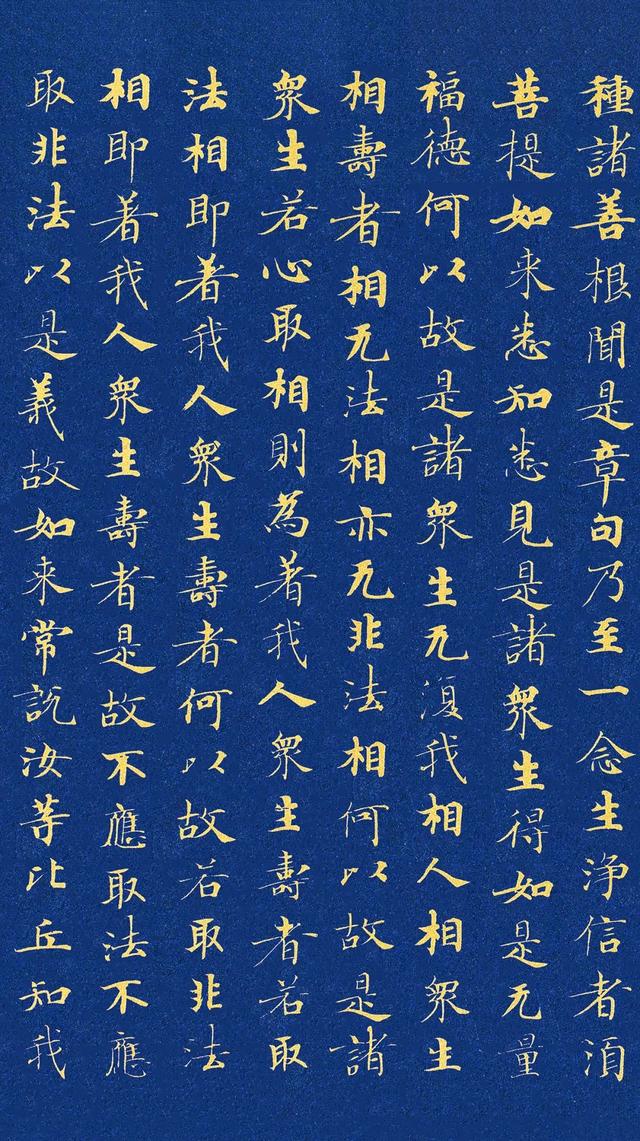 種諸善根聞是章句乃至一念生淨信者湏
菩提如来悉知悉見是諸衆生得如是无量
福德何以故是諸衆生无復我相人相衆生
相壽者相无法相亦无非法相何以故是諸
衆生若心取相則為著我人衆生壽者若取
法相即著我人衆生壽者何以故若取非法
相即著我人衆生壽者是故不應取法不應
取非法以是義故如来常説汝等比丘知我